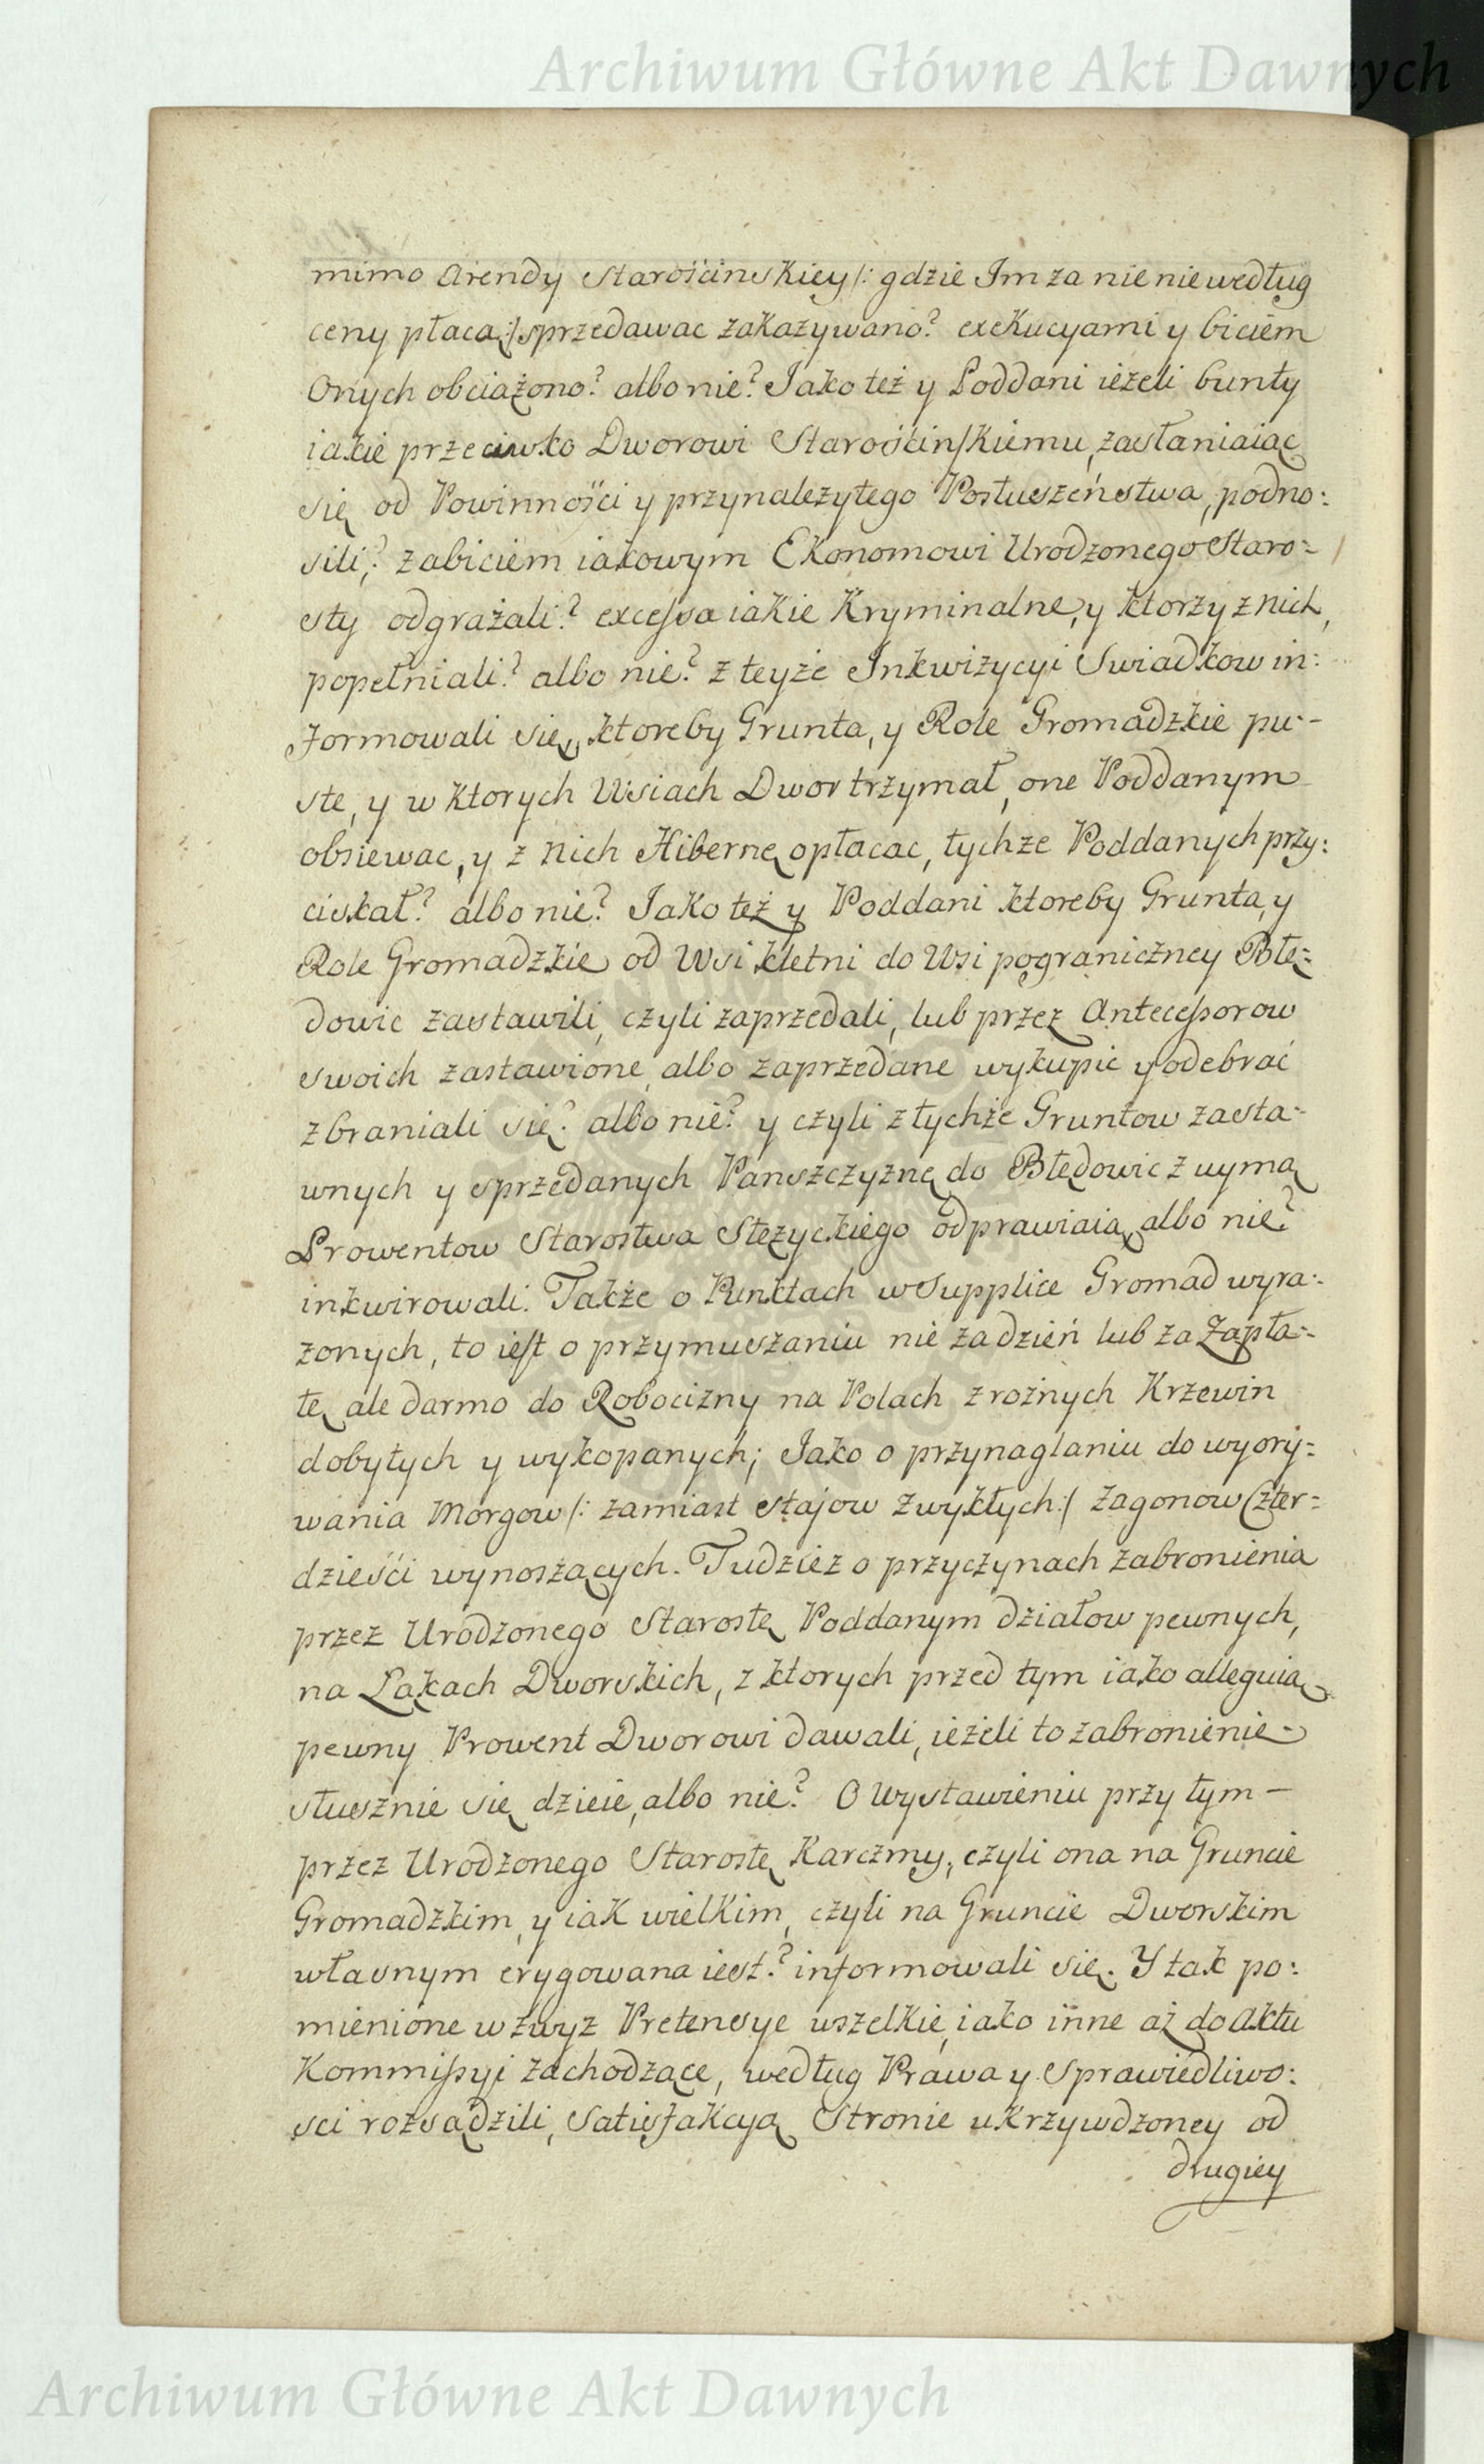 Archiwum Główne Akt Dawnych
mimo Arendy Starościnskiey /: gdzie Im za nie nie według
ceny płacą :/ sprzedawac zakazywano? exekucyami y biciem
Onych obciążono? albo nie? Jako też y Poddani ieżeli bunty
iakie przeciwko Dworowi Starościnskiemu, zasłaniaiąc
się od Powinności y przynależytego Posłuszeństwa, podno:
sili,? zabiciem iakowym Ekonomowi Urodzonego Staro=
sty odgrażali? excessa iakie Kryminalne, y ktorzy z nich,
popełniali? albo nie? z teyże Inkwizycyi Swiadkow in:
formowali się, ktoreby Grunta, y Role Gromadzkie pu=
ste, y w ktorych Wsiach Dwor trzymał, one Poddanym
obsiewac, y z nich Hibernę opłacac, tychże Poddanych przy:
ciskał? albo nie? Jako też y Poddani ktoreby Grunta, y
Role Gromadzkie od Wsi Kletni do Wsi pograniczney Błę=
dowic zastawili, czyli zaprzedali, lub przez Antecessorow
swoich zastawione, albo zaprzedane wykupic y odebrać
zbraniali się? albo nie? y czyli z tychże Gruntow zasta=
wnych y sprzedanych Panszczyznę do Błędowic z uymą
Prowentow Starostwa Stężyckiego odprawiaią, albo nie?
inkwirowali. Także o Punktach w Supplice Gromad wyra=
żonych, to iest o przymuszaniu nie za dzień lub za Zapła=
tę ale darmo do Robocizny na Polach z rożnych Krzewin
dobytych y wykopanych; Jako o przynaglaniu do wyory=
wania Morgow /: zamiast stajow zwykłych :/ Zagonow Czter=
dzieści wynoszących. Tudziez o przyczynach zabronienia
przez Urodzonego Starostę Poddanym działow pewnych,
na Łąkach Dworskich, z ktorych przed tym iako alleguią
pewny Prowent Dworowi dawali, ieżeli to zabronienie
słusznie się dzieie, albo nie? O Wystawieniu przy tym –
przez Urodzonego Starostę Karczmy, czyli ona na Gruncie
Gromadzkim, y iak wielkim, czyli na Gruncie Dworskim
własnym erygowana iest? informowali się. Y tak po:
mienione wzwyz Pretensye wszelkie, iako inne aż do Aktu
Kommissyi zachodzące, według Prawa y Sprawiedliwo:
sci rozsądzili, Satisfakcyą Stronie ukrzywdzoney od
drugiey
Archiwum Główne Akt Dawnych